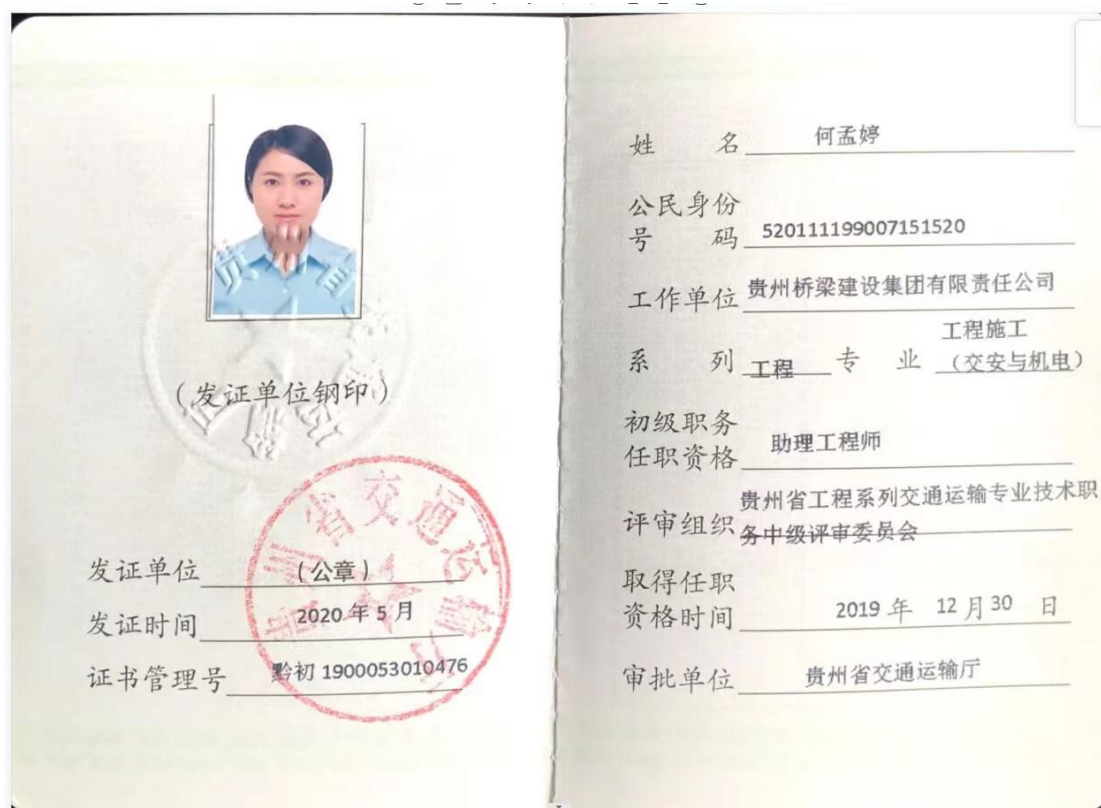 (发证单位钢印)
贵州省交通运输厅
发证单位 (公章)
发证时间 2020年5月
证书管理号 黔初1900053010476
姓 名 何孟婷
公民身份
号 码 520111199007151520
工作单位 贵州桥梁建设集团有限责任公司
工程施工
系 列 工程 专 业 (交安与机电)
初级职务
任职资格 助理工程师
贵州省工程系列交通运输专业技术职
评审组织 务中级评审委员会
取得任职
资格时间 2019年 12月30 日
审批单位 贵州省交通运输厅